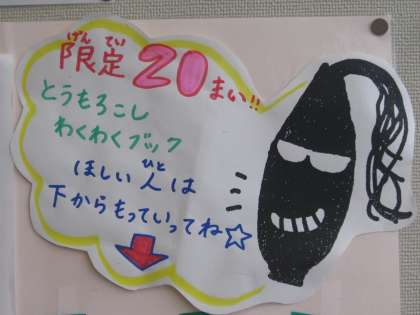 げんてい
限定20まい!!
とうもろこし
わくわくブック
ひと
ほしい人は
下からもっていってね☆